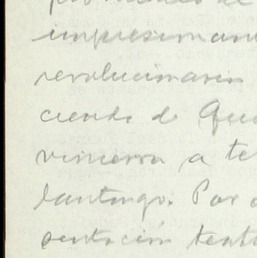 impresionan
revolucionario
ciendo de Gua
vinieron a te
lantango. Por
sentación teat